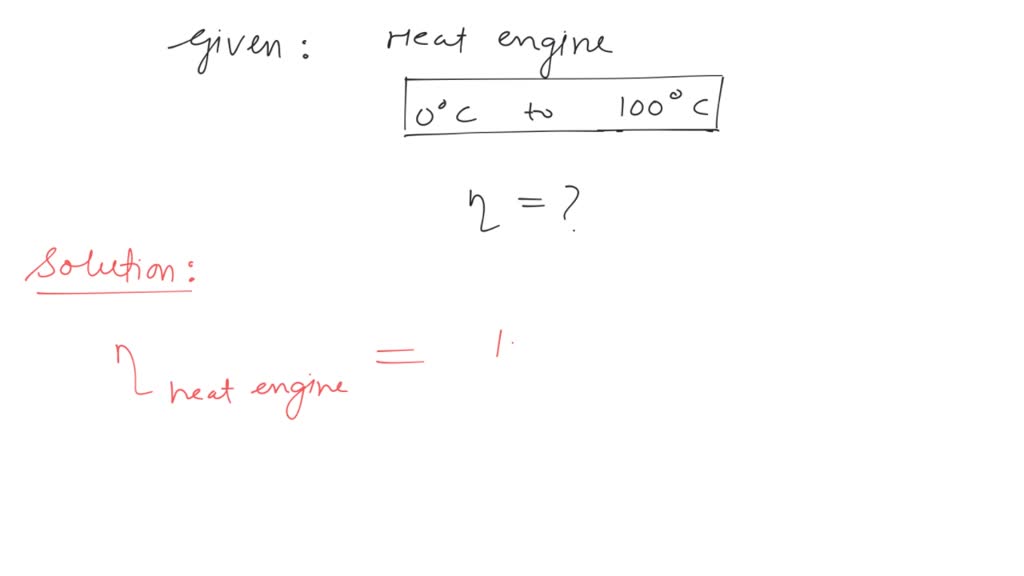 Given: Heat engine
0°C to 100°C
η = ?
Solution:
η heat engine = 1